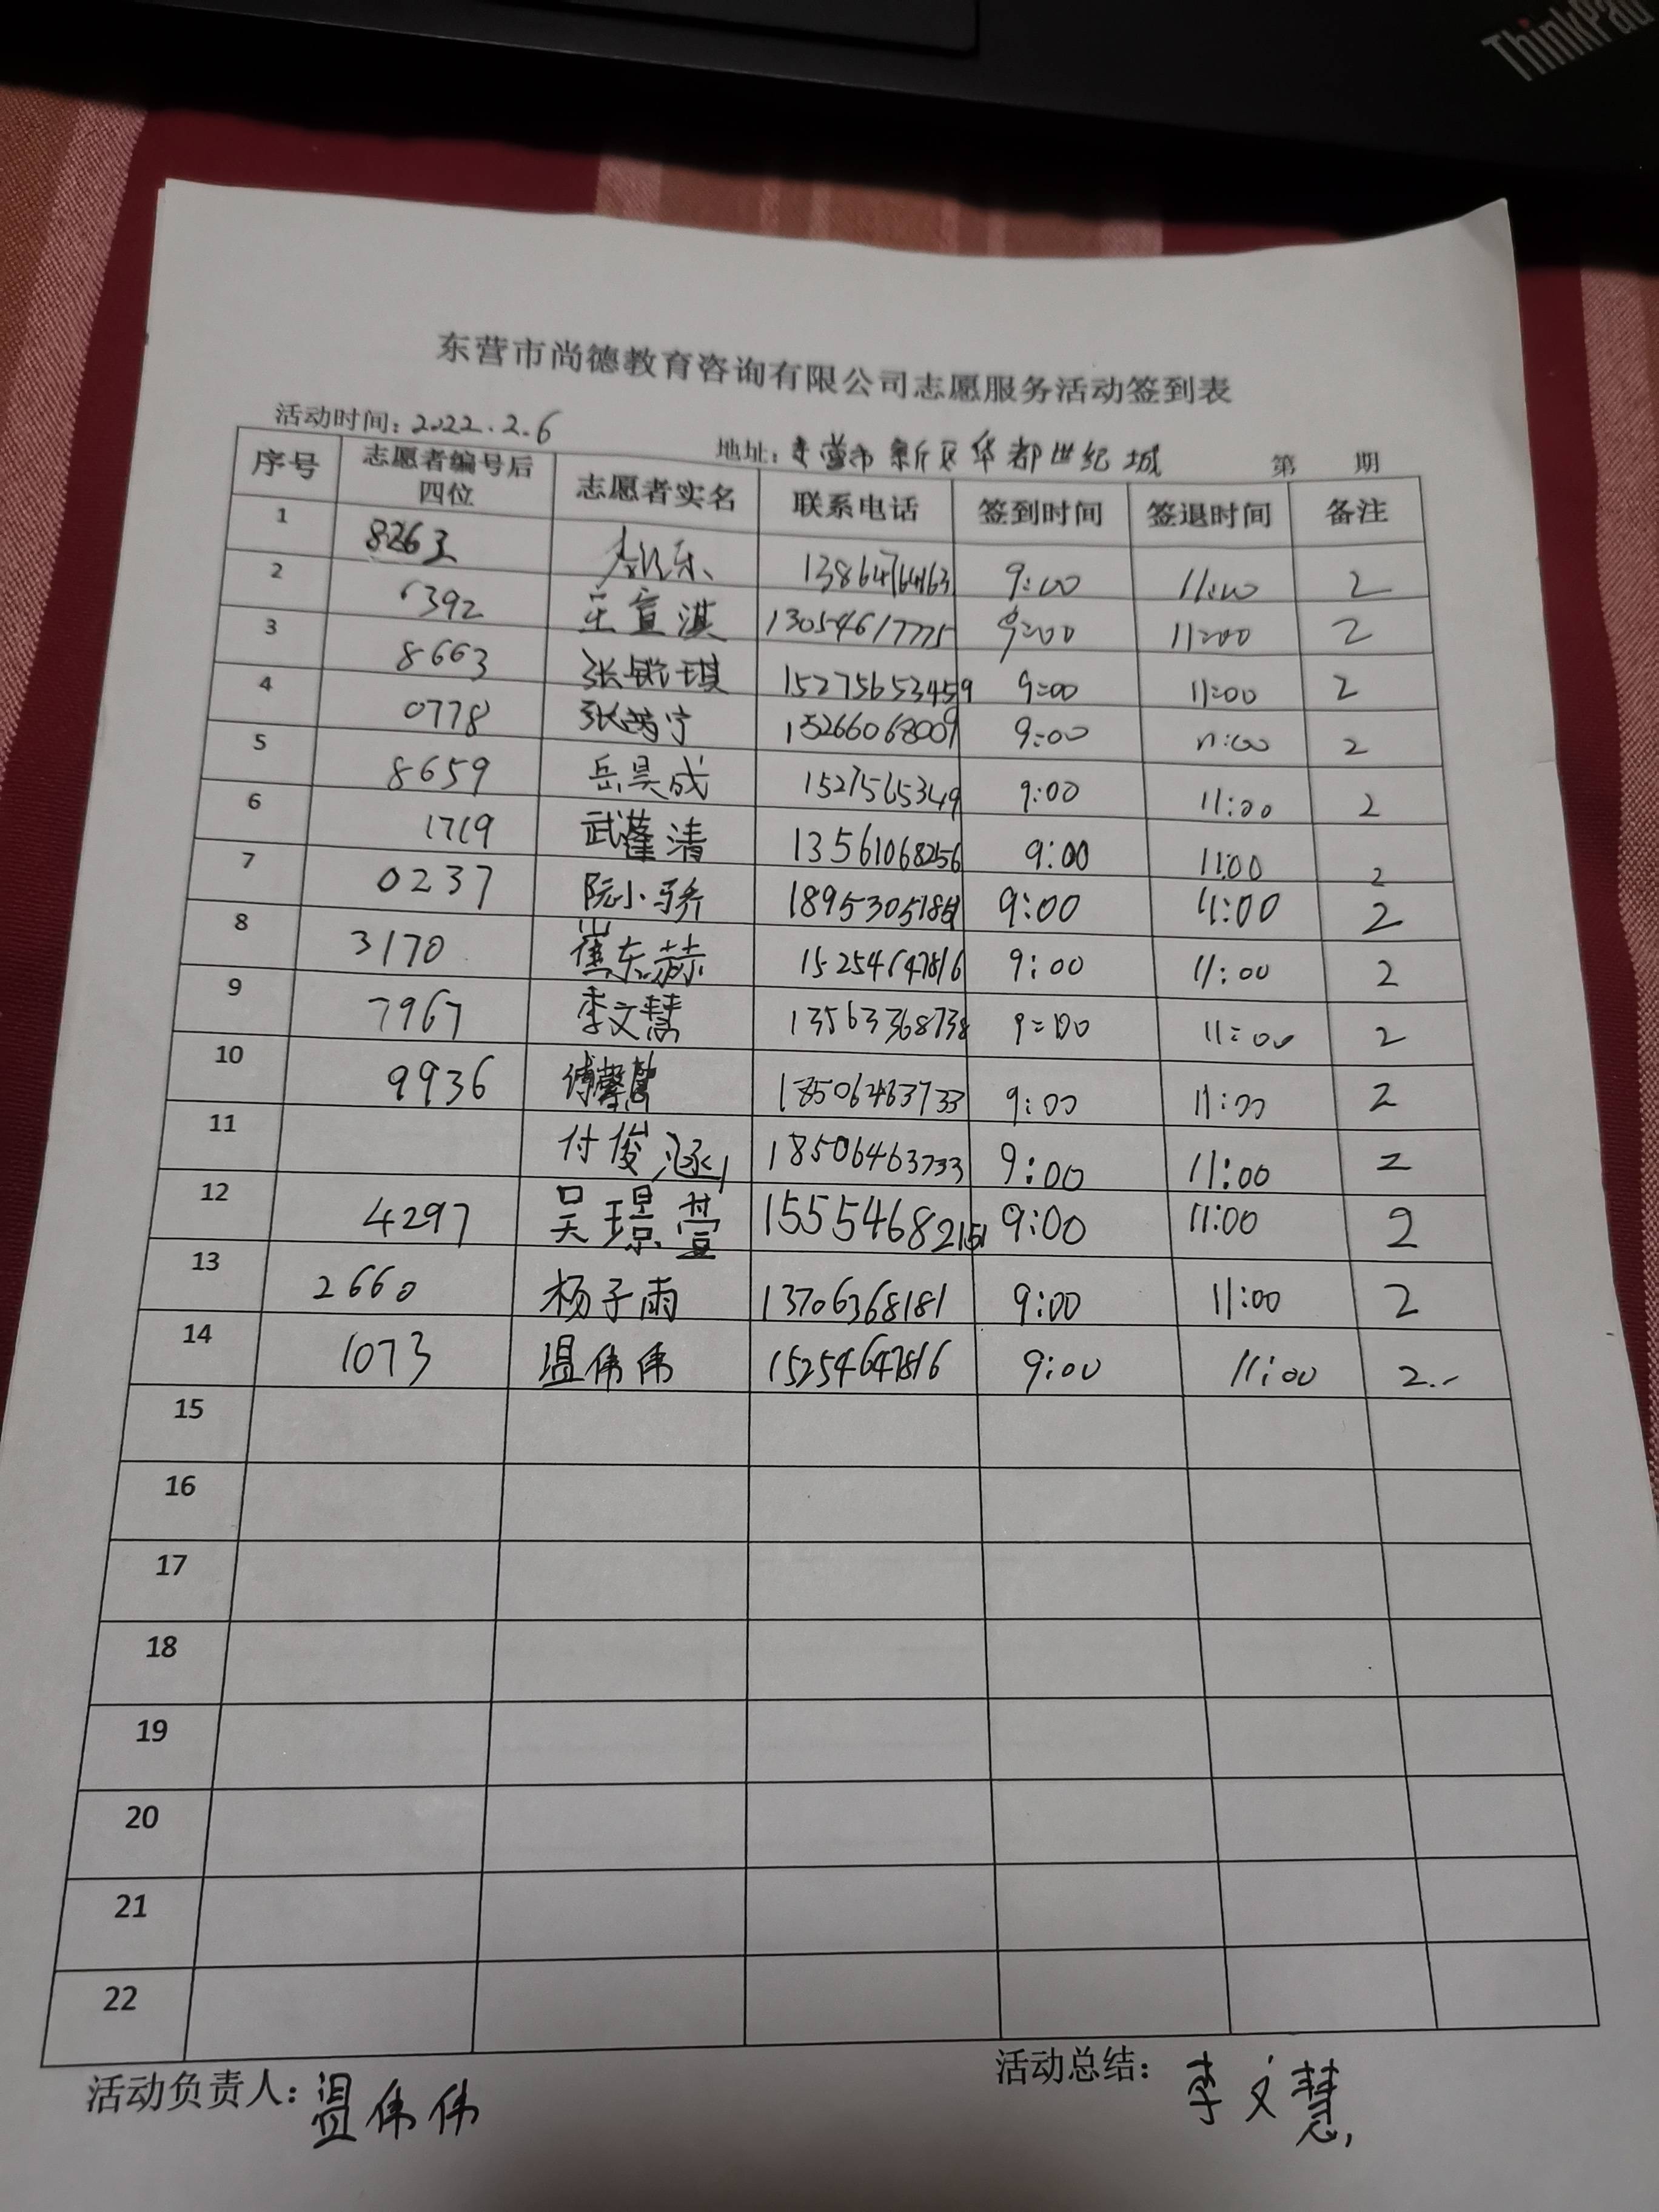 ThinkPad
东营市尚德教育咨询有限公司志愿服务活动签到表
活动时间：2022.2.6 地址：东营市新区华都世纪城 第 期
序号 志愿者编号后四位 志愿者实名 联系电话 签到时间 签退时间 备注
1 8263 13864764163 9:00 11:00 2
2 6392 宣淇 13054617775 9:00 11:00 2
3 8663 张锐琪 15275653459 9:00 11:00 2
4 0778 张 宁 15266068009 9:00 11:00 2
5 8659 岳昊成 1527565349 9:00 11:00 2
6 1719 武蓬清 13561068256 9:00 11:00 2
7 0237 阮小骄 9:00 11:00 2
8 3170 东赫 15254647816 9:00 11:00 2
9 7967 李文慧 13563368738 9:00 11:00 2
10 9936 18506463733 9:00 11:00 2
11 付俊涵 18506463733 9:00 11:00 2
12 4297 吴璟萱 15554682151 9:00 11:00 2
13 2660 杨子雨 13706368181 9:00 11:00 2
14 1073 温伟伟 15254647816 9:00 11:00 2
15
16
17
18
19
20
21
22
活动负责人：温伟伟 活动总结：李文慧